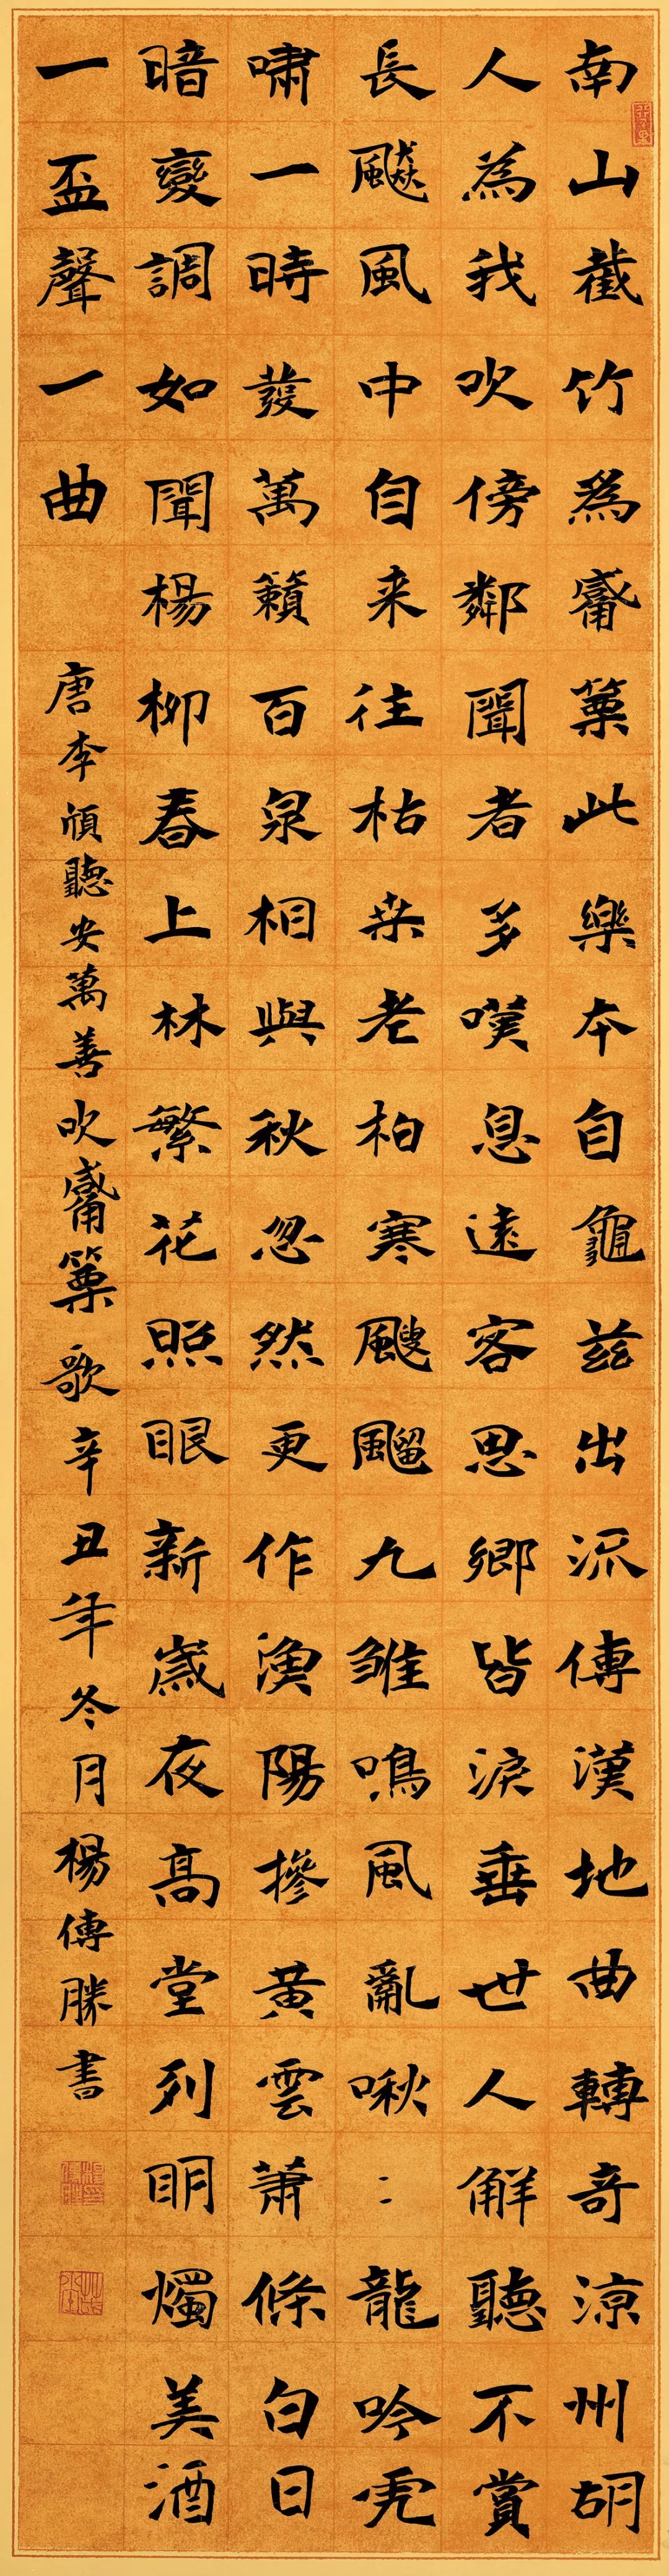 南山截竹為觱篥此樂本自龜茲出流傳漢地曲轉奇涼州胡
人為我吹傍鄰聞者多嘆息遠客思鄉皆淚垂世人解聽不賞
長飆風中自来往枯桒老柏寒颼飀九雛鳴鳳亂啾：龍吟虎
嘯一時發萬籟百泉相與秋忽然更作漁陽摻黃雲蕭條白日
暗變調如聞楊柳春上林繁花照眼新歲夜高堂列明燭美酒
一盃聲一曲
唐李頎聽安萬善吹觱篥歌辛丑年冬月楊傳勝書